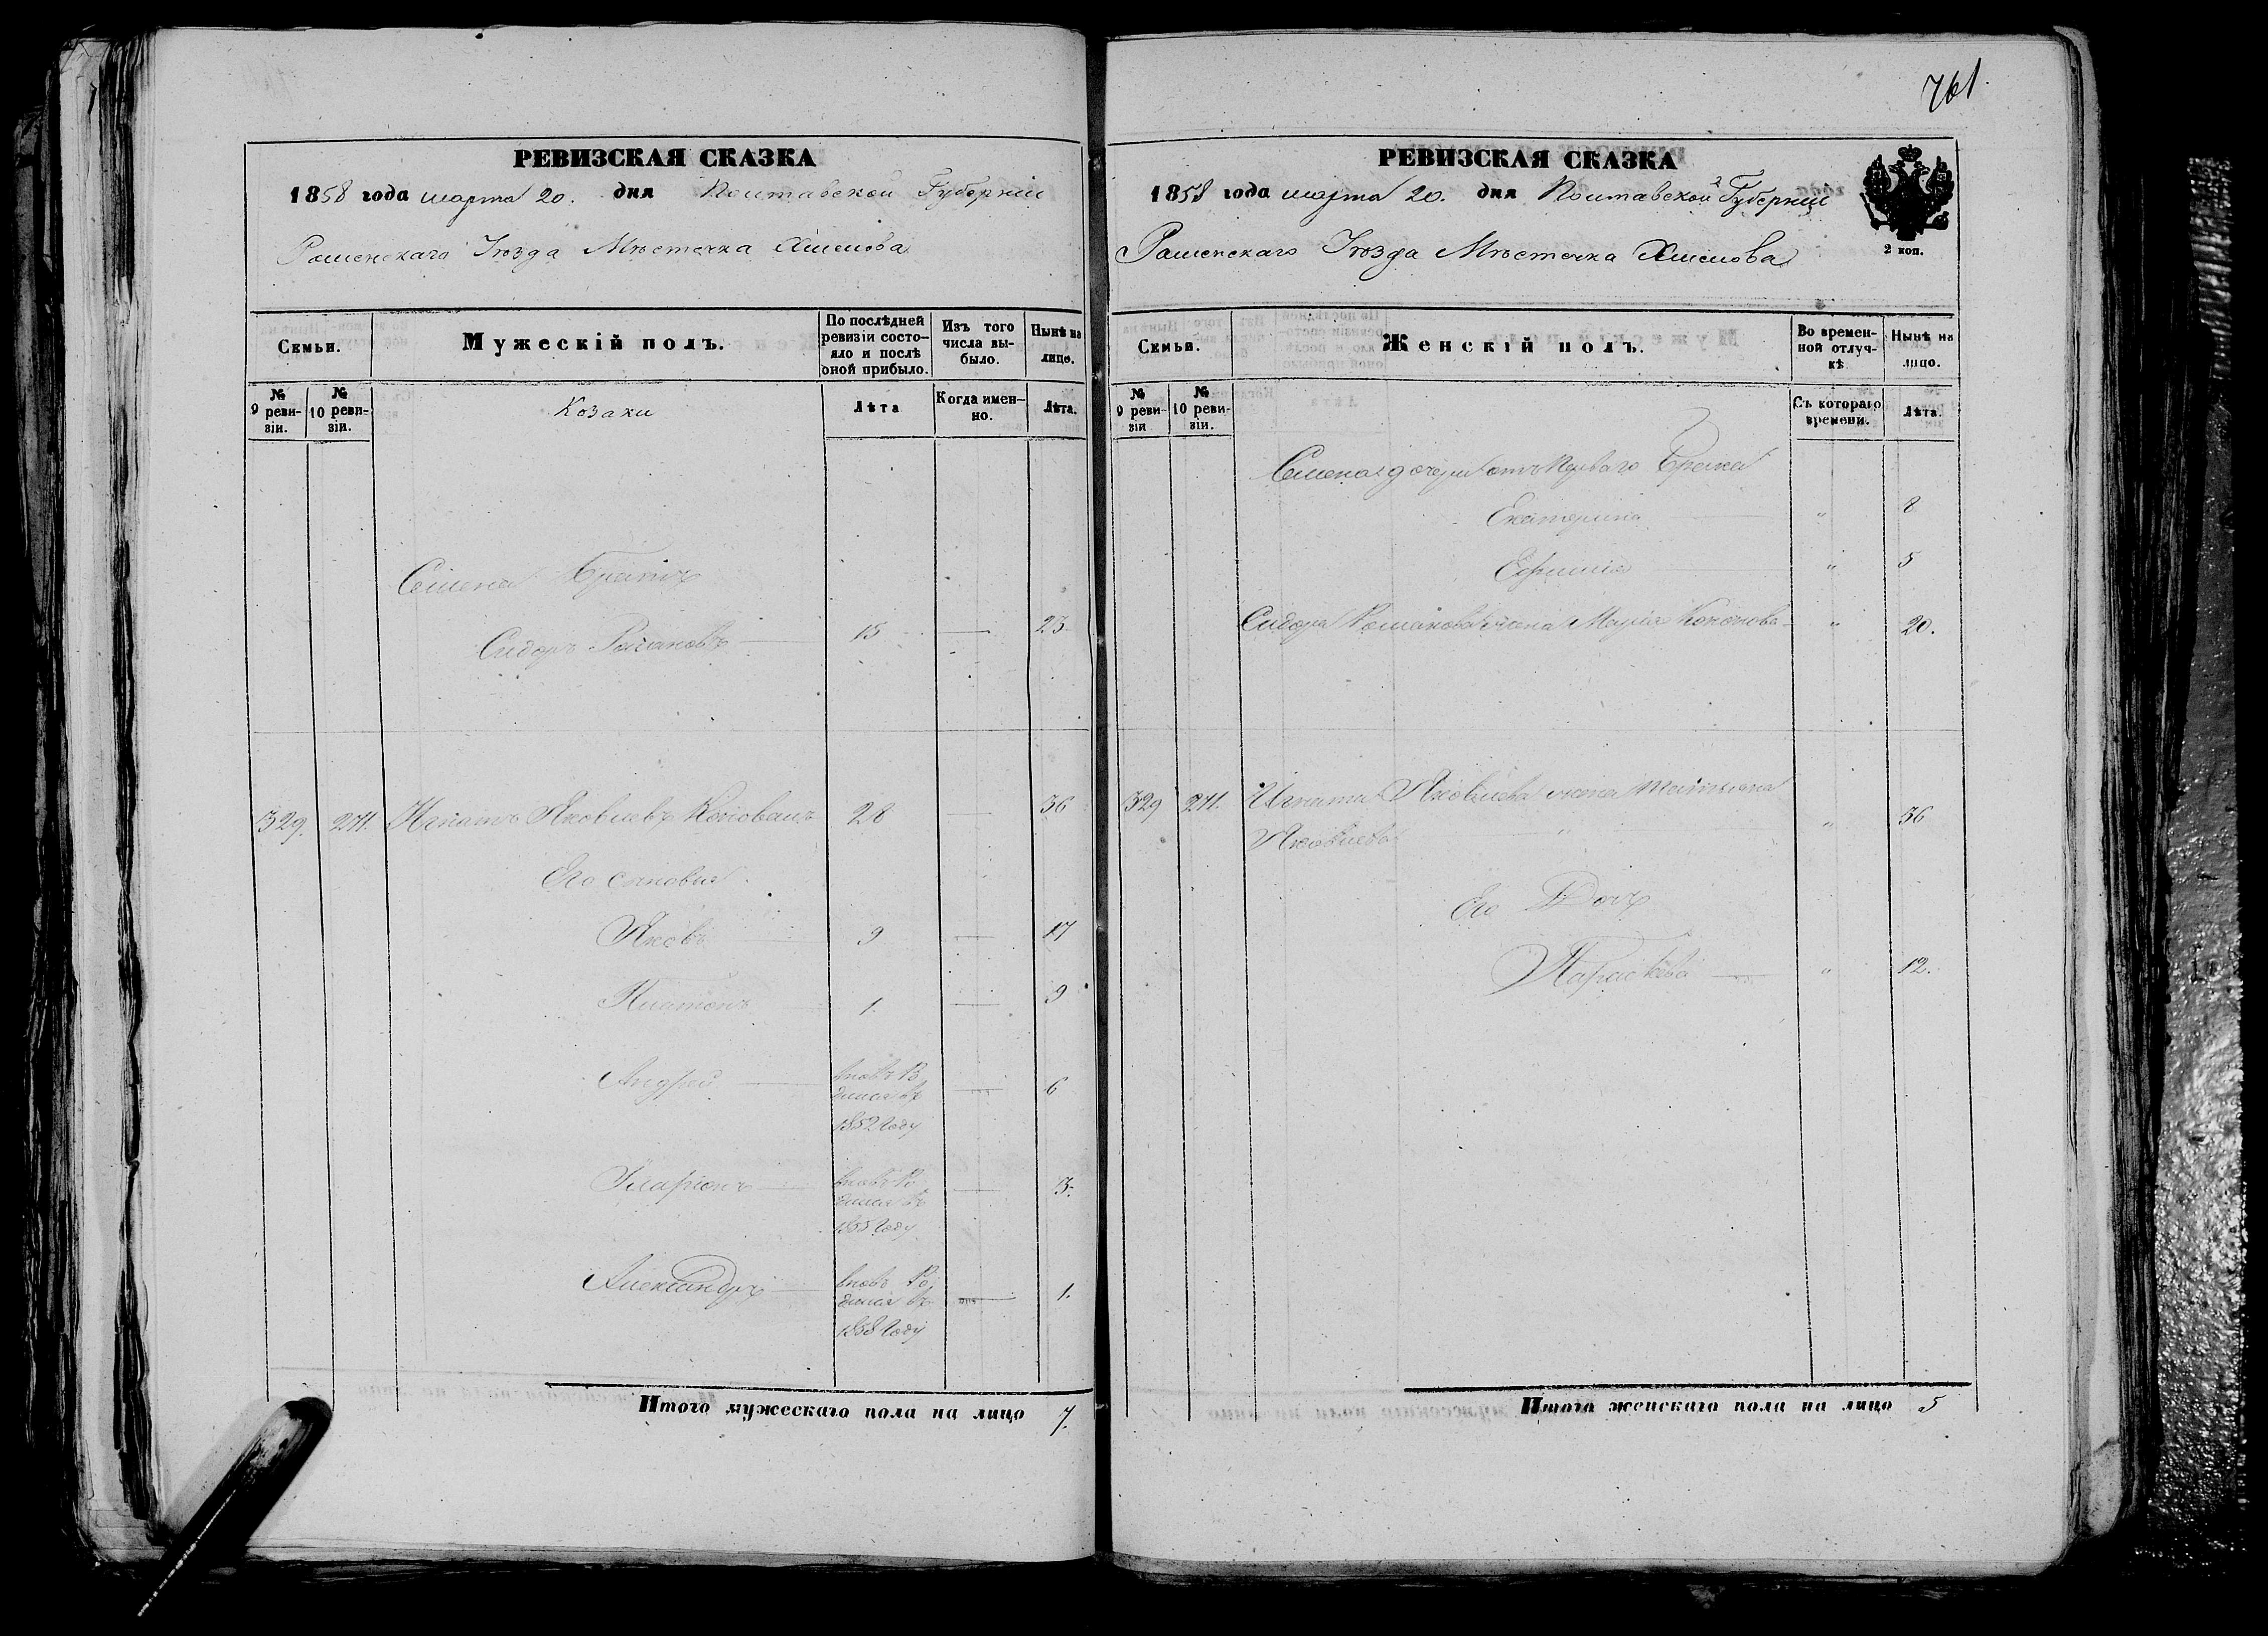 761
РЕВИЗСКАЯ СКАЗКА
1858 года марта 20. дня Полтавской Губерніи
Роменскаго Уѣзда Мѣстечка Хмелова
Семьи.
Мужескій полъ.
По послѣдней ревизіи состояло и послѣ оной прибыло.
Изъ того числа выбыло.
Нынѣ на лицо.
№ 9 ревизіи.
№ 10 ревизіи.
Козаки
Лѣта
Когда именно.
Лѣта.
Семена Братъ
Сидоръ Романовъ 15 — 23
329. 271. Игнатъ Яковлевъ Коновалъ 28 — 36
Его сыновья
Яковъ 9 — 17
Платонъ 1. — 9
Андрей вновь Ро
дился въ — 6
1852 Году
Іларіонъ вновь Ро
дился въ — 3.
1855 Году
Александръ вновь Ро
дился въ — 1.
1858 Году
Итого мужескаго пола на лицо 7.
РЕВИЗСКАЯ СКАЗКА
1858 года марта 20. дня Полтавской Губерніи
Роменскаго Уѣзда Мѣстечка Хмелова
2 коп.
Семьи.
Женскій полъ.
Во временной отлучкѣ
Нынѣ на лицо.
№ 9 ревизіи
№ 10 ревизіи.
Съ котораго времени.
Лѣта.
Семена дочери отъ Перваго Брака
Екатерина — " 8
Ефимія — " 5
Сидора Романова жена Марія Кононова — " 20.
329 271. Игната Яковлева жена Татьяна
Яковлева " " 36
Его Дочь
Параскева — " 12.
Итого женскаго пола на лицо 5